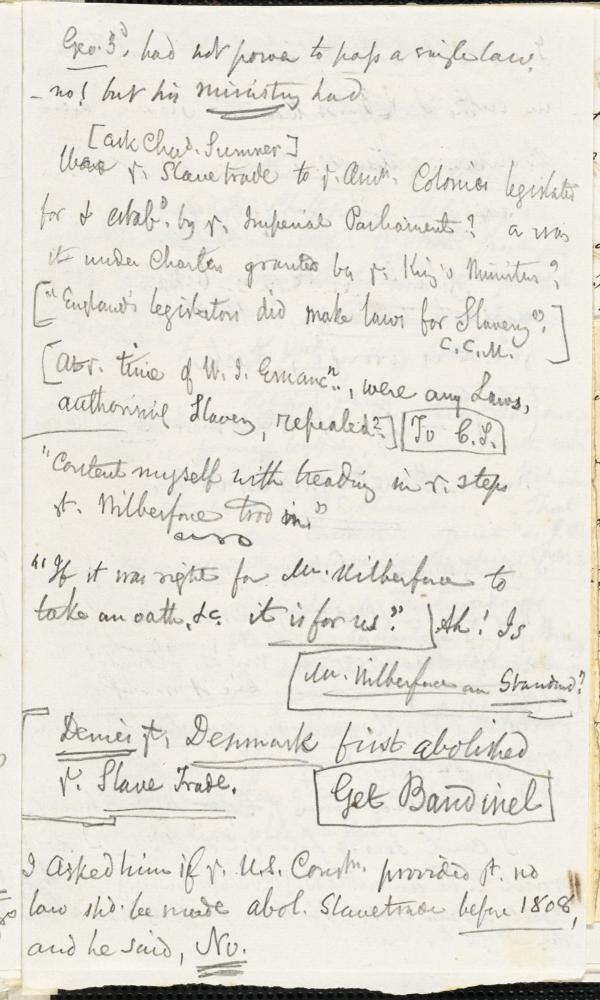 Geo. 3d. had not power to pass a single law.
– no! but his ministry had
[ask Chas. Sumner]
Was ye. Slave trade to ye. Amn. Colonies legislated
for & estabd. by ye. Imperial Parliament? or was
it under Charters granted by ye. King's Ministers?
["England's legislators did make laws for Slavery"?
C.C.M.]
[At ye. time of W. I. Emancn., were any Laws,
authorising Slavery, repealed?] To C.S.
"Content myself with treading in ye. steps
yt. Wilberforce trod in"
"If it was right for Mr. Wilberforce to
take an oath, &c. it is for us?" Ah! Is
Mr. Wilberforce our Standard?
Denies yt. Denmark first abolished
ye. Slave Trade.
Get Bandinel
I asked him if ye. U.S. Constn. provided yt. no
law shd. be made abol. Slavetrade before 1808,
and he said, No.